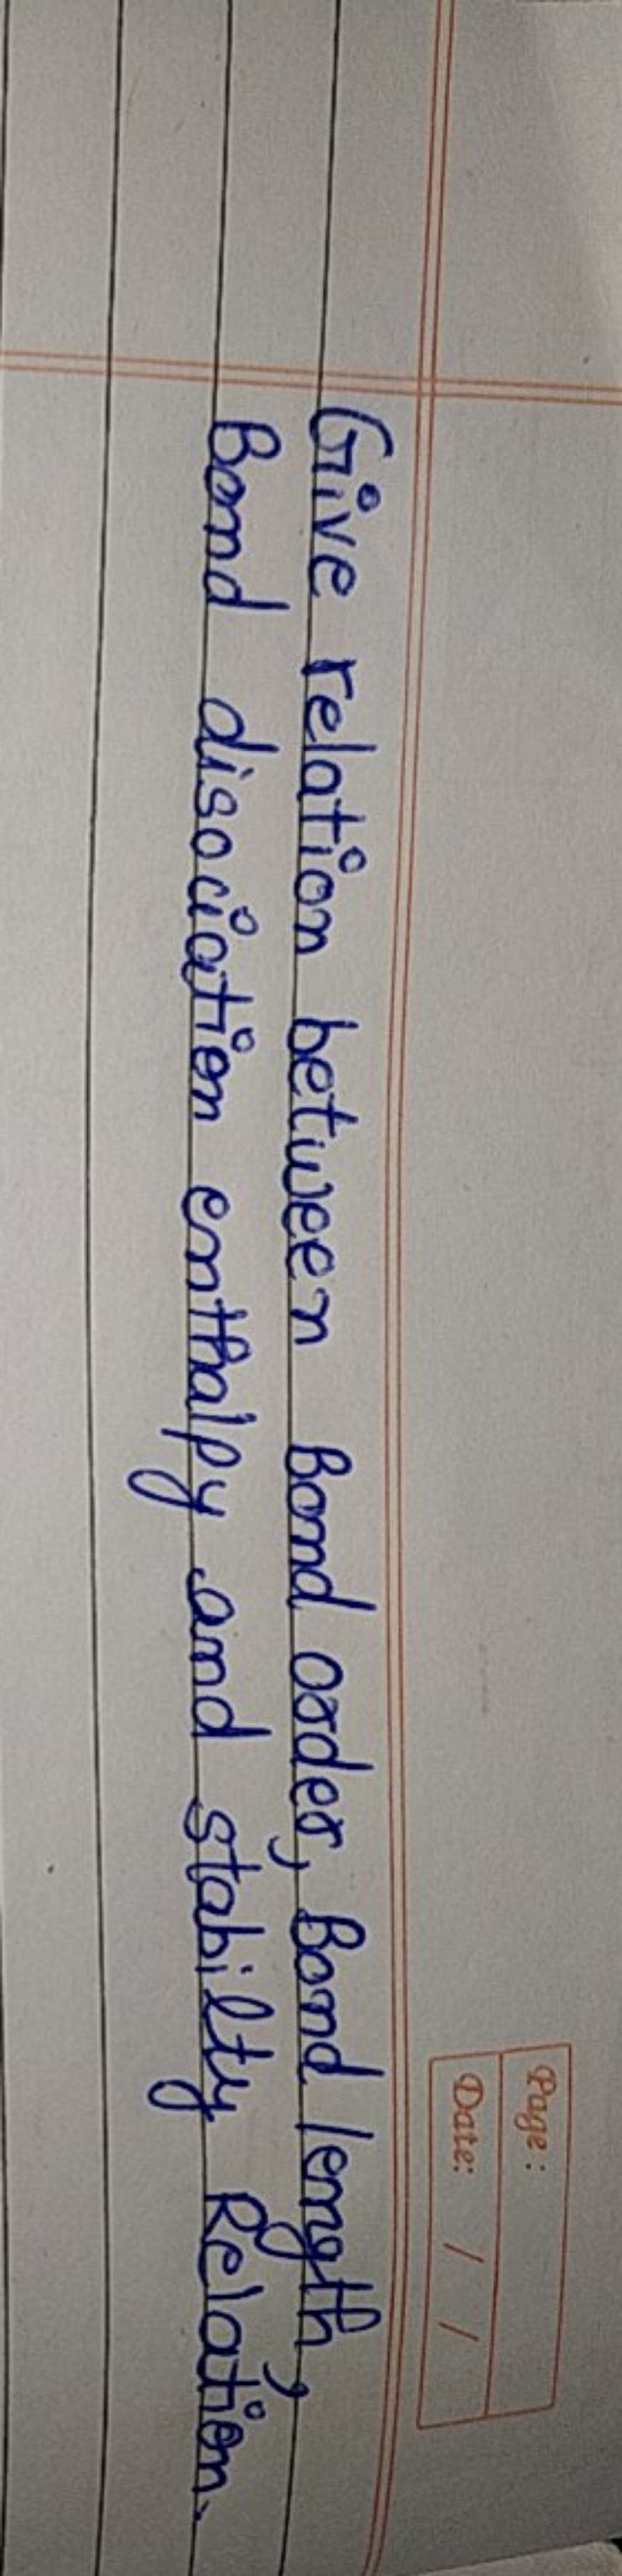 Page:
Date: / /
Give relation between Bond order, Bond length,
Bond disociation enthalpy and stabilty Relation.